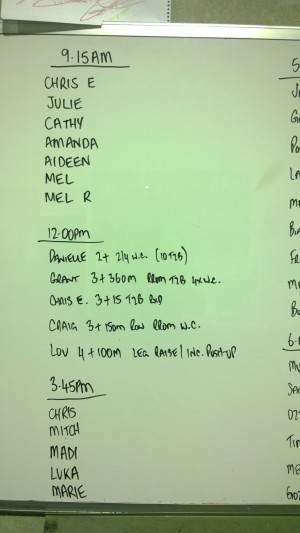 9.15AM
CHRIS E
JULIE
CATHY
AMANDA
AIDEEN
MEL
MEL R
12.00PM
DANIELLE 2+ 2/4 W.C. (10 T2B)
GRANT 3+360m FROM T2B 4x W.C.
CHRIS E. 3+15 T2B
CRAIG 3+150m ROW FROM W.C.
LOU 4+100M LEG RAISE / INC. PUSH-UP
3.45PM
CHRIS
MITCH
MADI
LUKA
MARIE
5
LA
FR
6.
TIM
ME